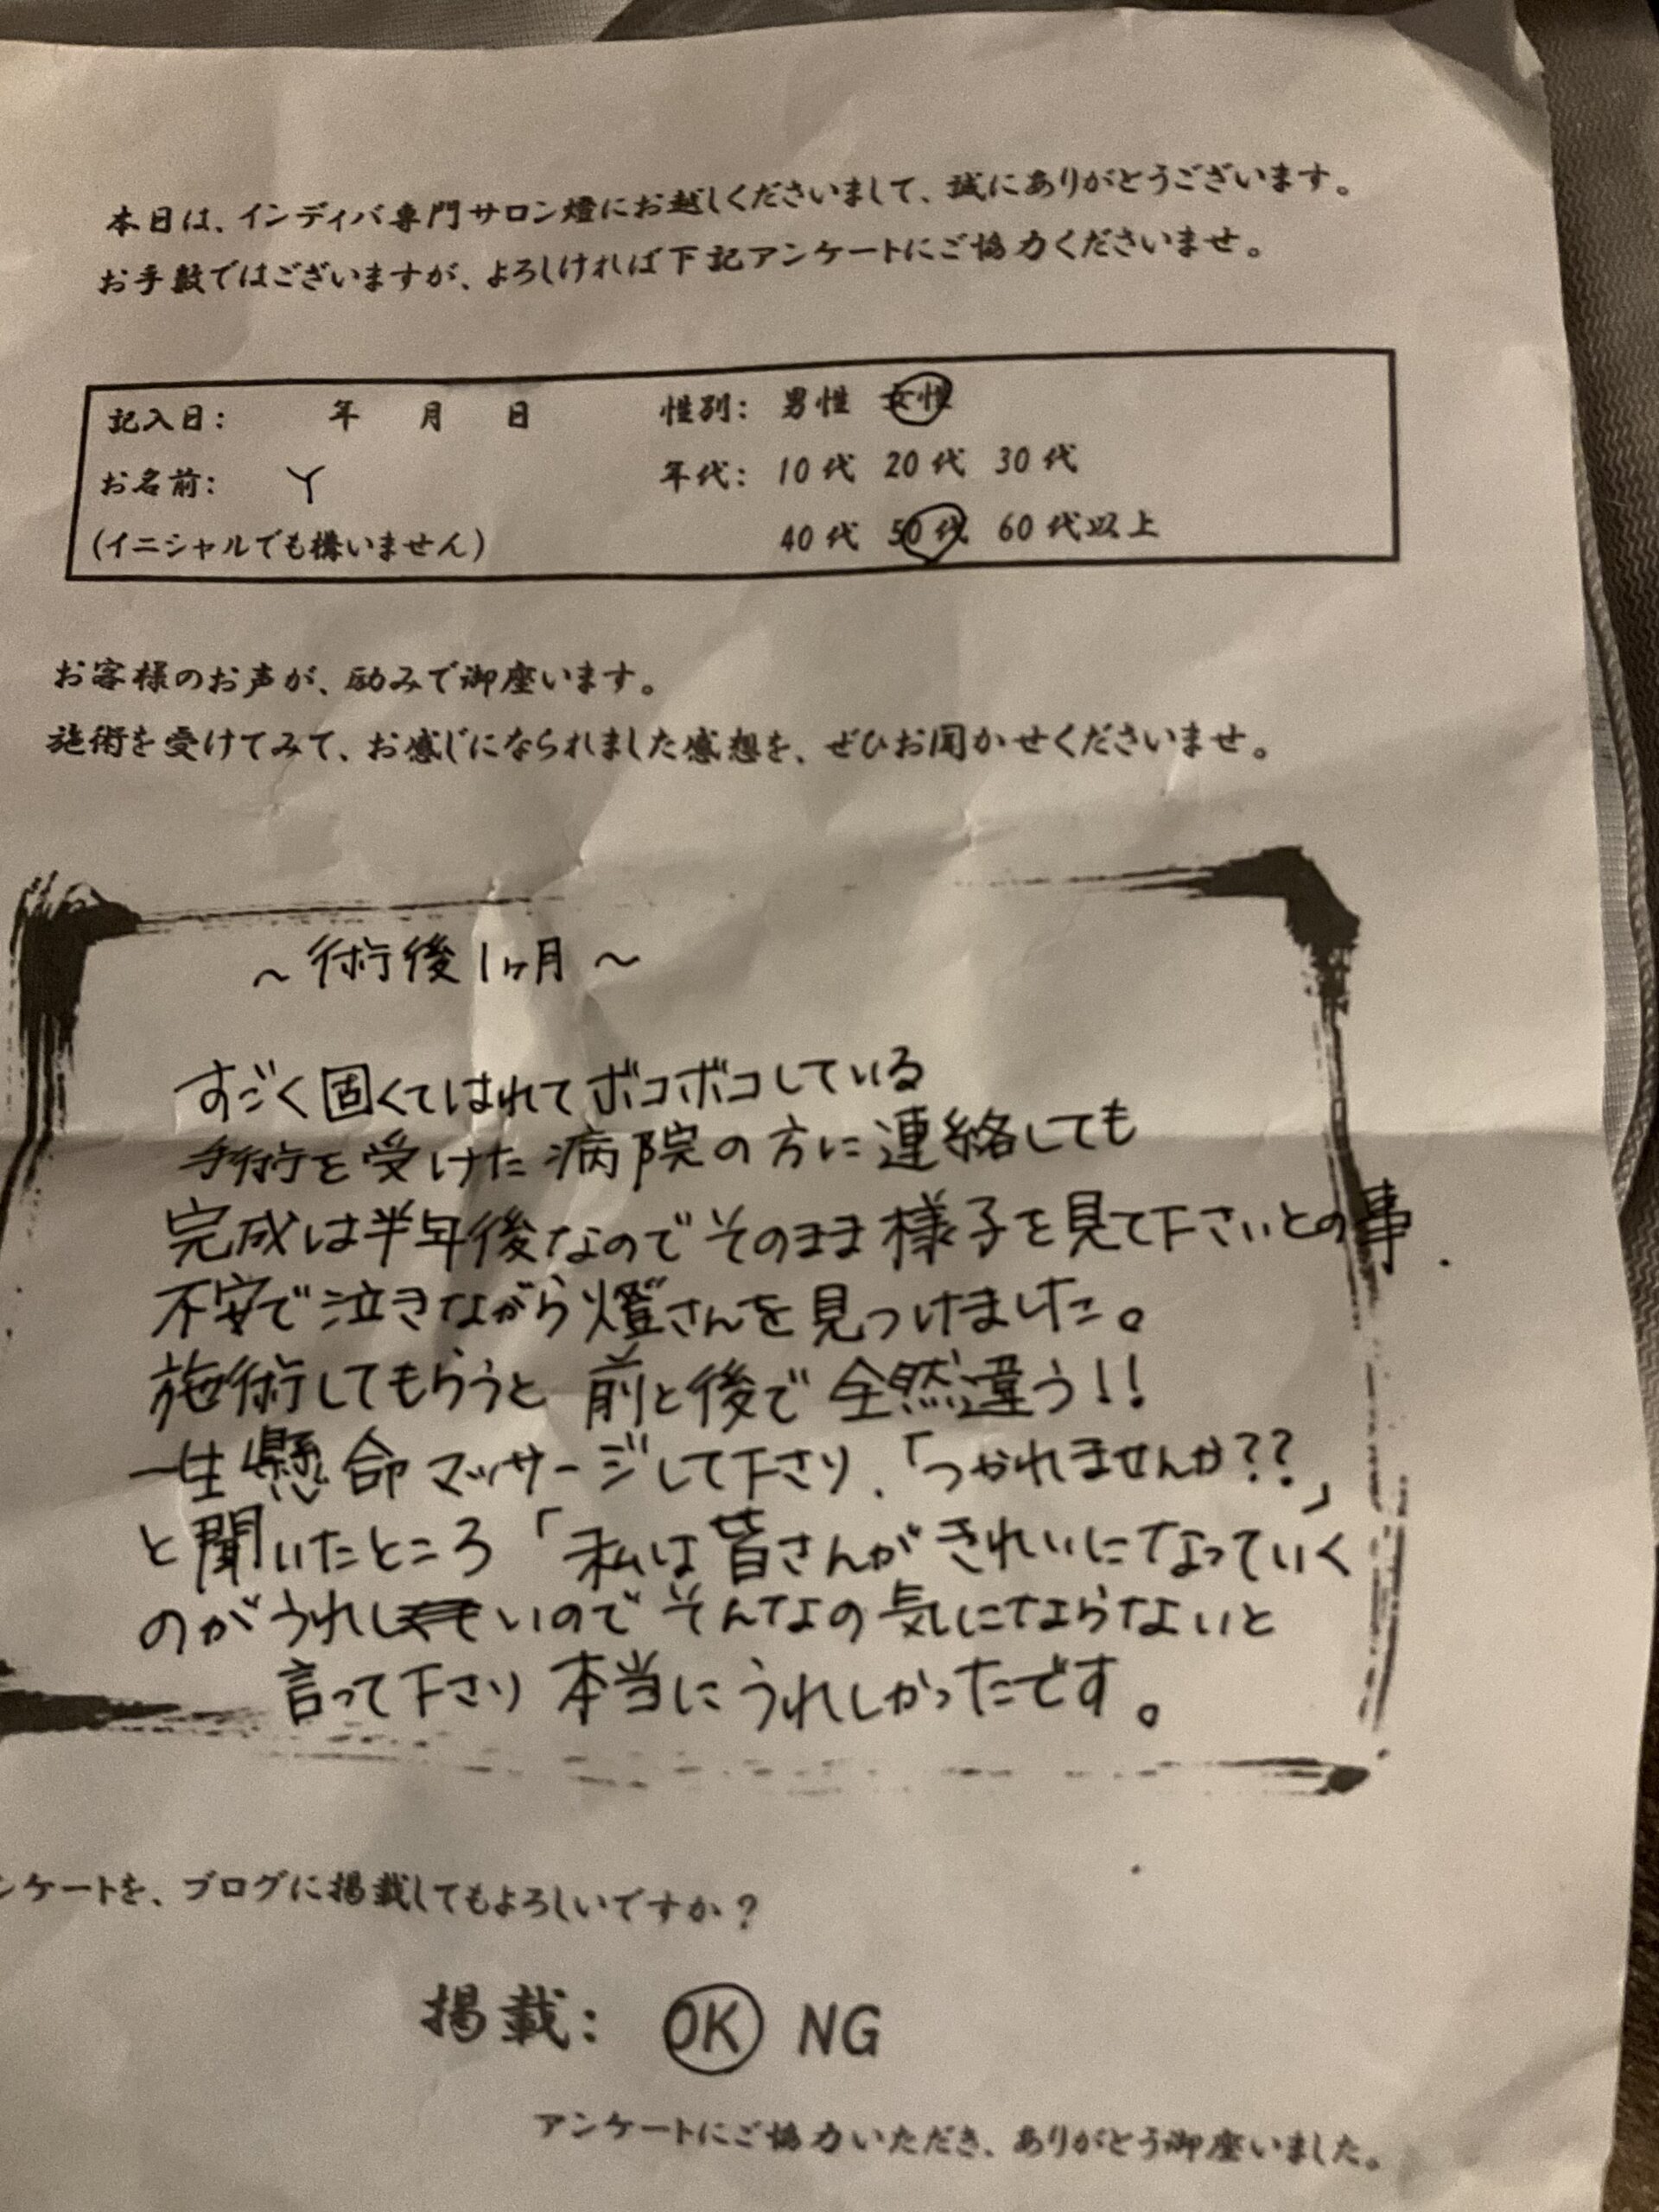 本日は、インディバ専門サロン燈にお越しくださいまして、誠にありがとうございます。
お手数ではございますが、よろしければ下記アンケートにご協力くださいませ。
記入日: 年 月 日 性別: 男性 女性
お名前: Y 年代: 10代 20代 30代
(イニシャルでも構いません) 40代 50代 60代以上
お客様のお声が、励みで御座います。
施術を受けてみて、お感じになられました感想を、ぜひお聞かせくださいませ。
~術後1ヶ月~
すごく固くてはれてボコボコしている
手術を受けた病院の方に連絡しても
完成は半年後なのでそのまま様子を見て下さいとの事.
不安で泣きながら燈さんを見つけました。
施術してもらうと前と後で全然違う!!
一生懸命マッサージして下さり、「つかれませんか??」
と聞いたところ「私は皆さんがきれいになっていく
のがうれしいのでそんなの気にならないと
言って下さり本当にうれしかったです。
ンケートを、ブログに掲載してもよろしいですか?
掲載: OK NG
アンケートにご協力いただき、ありがとう御座いました。